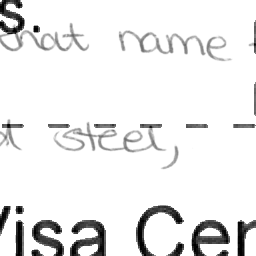 s.
that name
steel,
Visa Cen